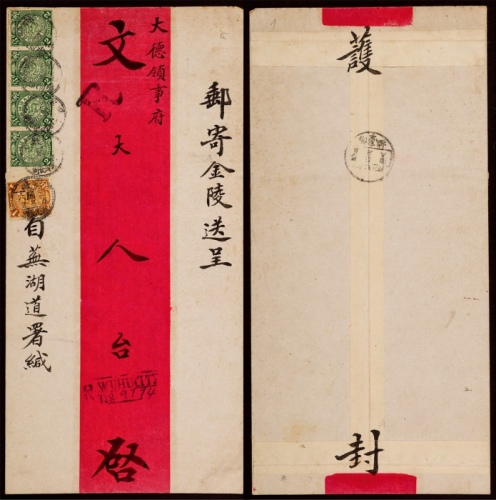 郵寄金陵送呈
大德領事府
文大人台啓
R
自蕪湖道署緘
R WUHU
No 9774
護
封